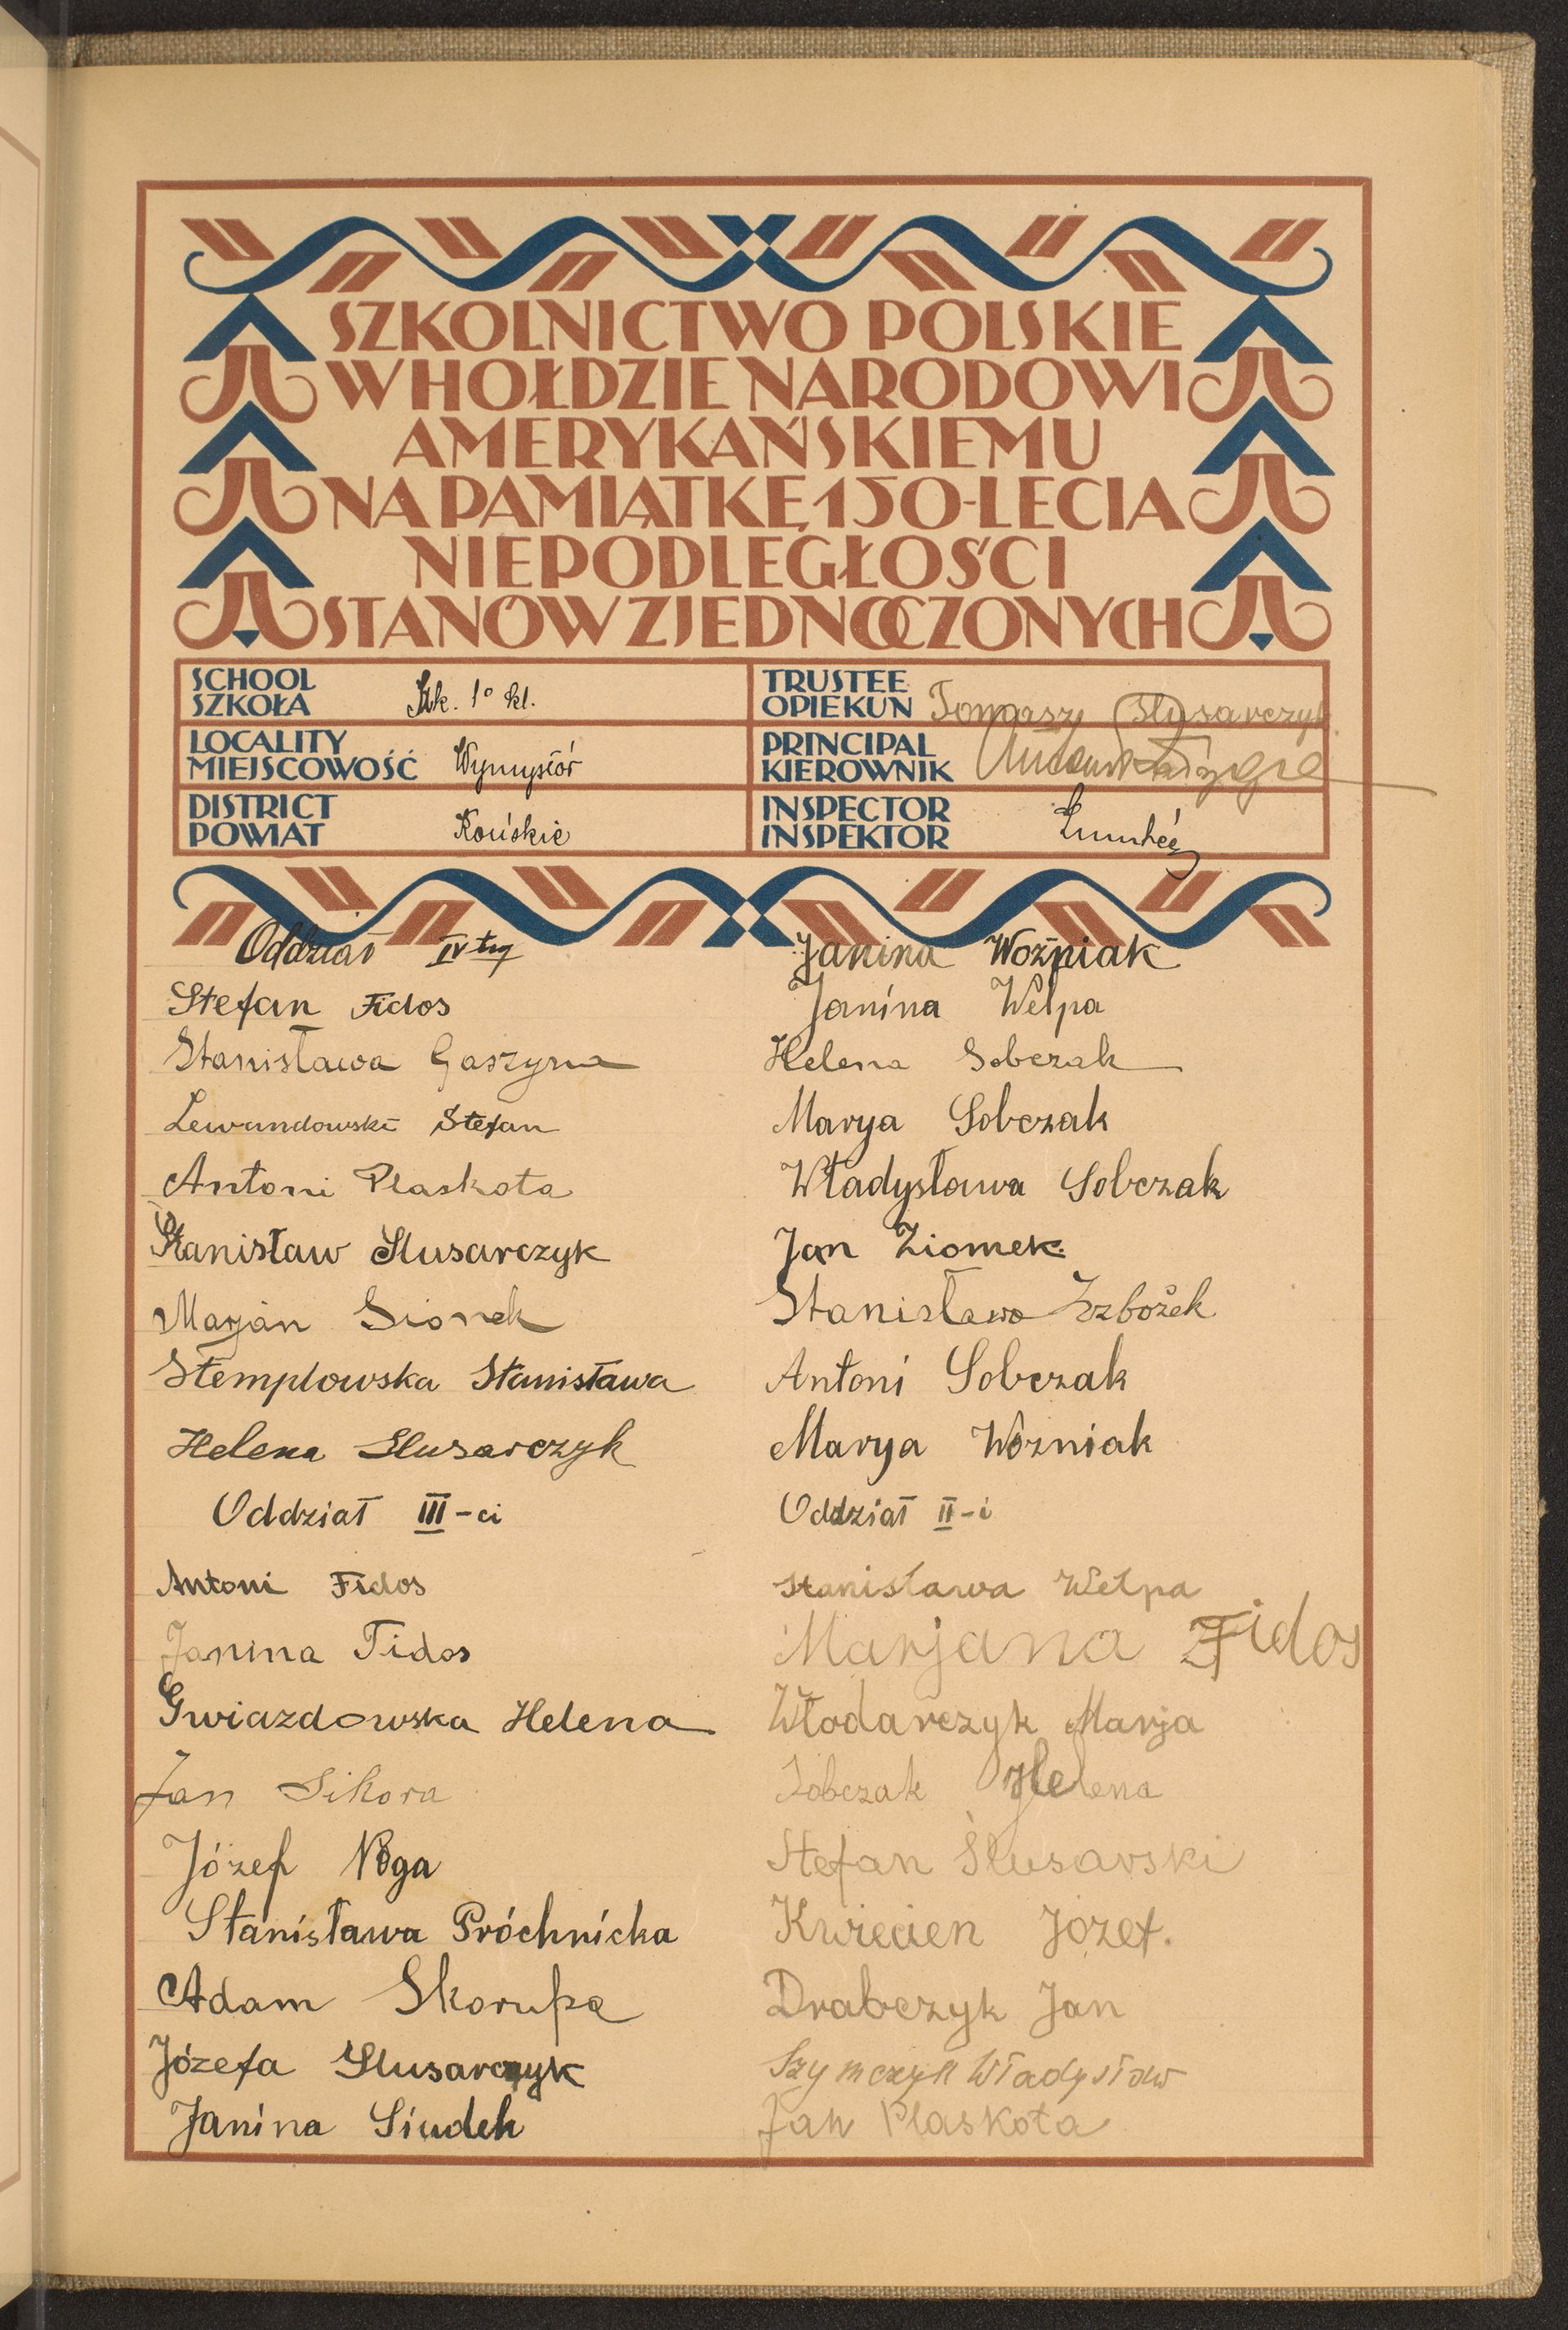 SZKOLNICTWO POLSKIE
W HOŁDZIE NARODOWI
AMERYKAŃSKIEMU
NA PAMIĄTKĘ 150-LECIA
NIEPODLEGŁOŚCI
STANÓW ZJEDNOCZONYCH
SCHOOL
SZKOŁA
Szk. 1º kl.
TRUSTEE
OPIEKUN
Tomasz Ślusarczyk
LOCALITY
MIEJSCOWOŚĆ
Wymysłów
PRINCIPAL
KIEROWNIK
DISTRICT
POWIAT
Końskie
INSPECTOR
INSPEKTOR
Oddział IV-ty
Stefan Fidos
Stanisława Gaszyna
Lewandowski Stefan
Antoni Plaskota
Stanisław Slusarczyk
Marjan Sionek
Stemplowska Stanisława
Helena Slusarczyk
Oddział III-ci
Antoni Fidos
Janina Fidos
Gwiazdowska Helena
Jan Sikora
Józef Noga
Stanisława Próchnicka
Adam Skorupa
Józefa Slusarczyk
Janina Siudek
Janina Woźniak
Janina Wełpa
Helena Sobczak
Marya Sobczak
Władysława Sobczak
Jan Ziomek.
Stanisława
Antoni Sobczak
Marya Woźniak
Oddział II-i
Stanisława Wełpa
Marjana Fidos
Włodarczyk Marja
Sobczak Helena
Stefan Ślusarski
Kwiecien Józef.
Drabczyk Jan
Szymczyk Władysław
Jan Plaskota